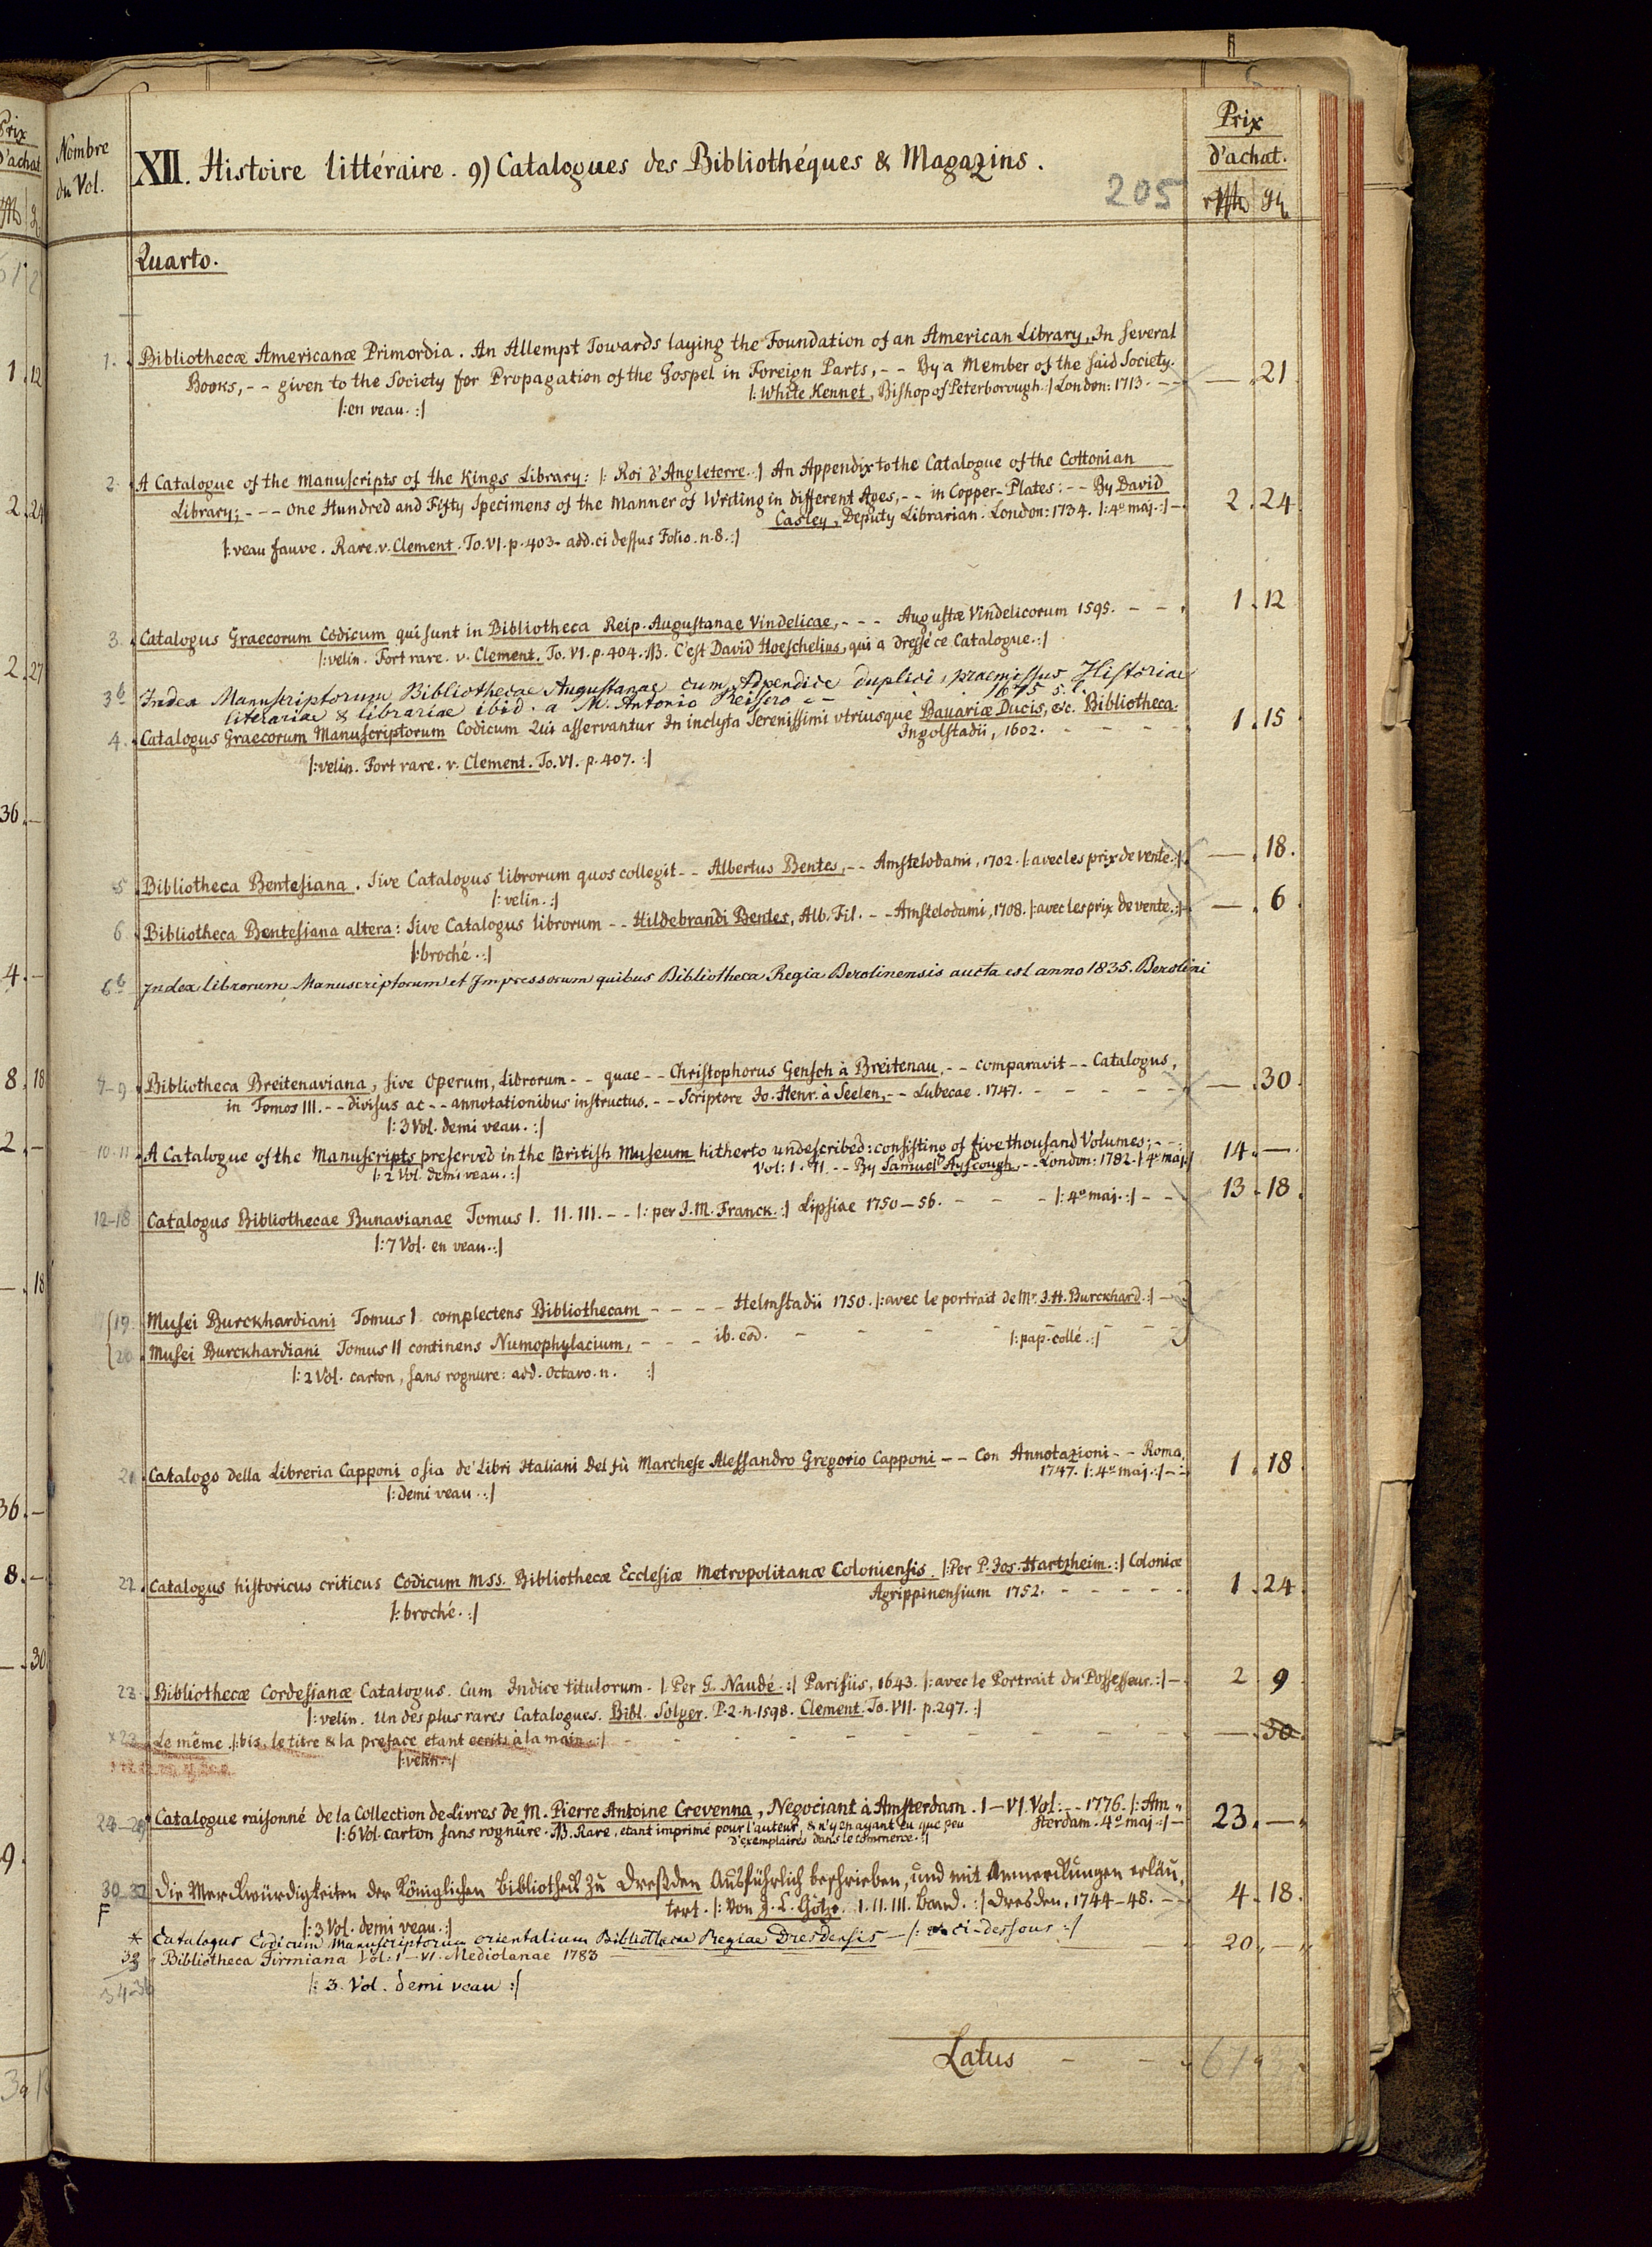 Prix
d'achat
1. 12
2. 24
2. 27
36. —
4. —
8. 18
2. —
—. 18
36. —
8. —
—. 30
9.
Nombre
du Vol.
XII. Histoire littéraire. 9) Catalogues des Bibliothéques & Magazins.
205
Prix
d'achat.
Quarto.
1. Bibliothecæ Americanæ Primordia. An Attempt Towards laying the Foundation of an American Library, In several
Books, -- given to the Society for Propagation of the Gospel in Foreign Parts, -- By a Member of the said Society.
|: White Kennet, Bishop of Peterborough :| London: 1713. -- — . 21
|: en veau. :|
2. A Catalogue of the Manuscripts of the Kings Library: |: Roi d'Angleterre. :| An Appendix to the Catalogue of the Cottonian
Library; --- one Hundred and Fifty Specimens of the Manner of Writing in different Ages, -- in Copper-Plates: -- By David
Casley, Deputy Librarian. London: 1734. |: 4º maj. :| - 2 . 24
|: veau fauve. Rare. v. Clement. To. VI. p. 403. add. ci dessus Folio. n. 8. :|
3. Catalogus Graecorum Codicum qui sunt in Bibliotheca Reip. Augustanae Vindelicae, --- Augustæ Vindelicorum 1595. - - 1 . 12
|: velin. Fort rare. v. Clement. To. VI. p. 404. NB. C'est David Hoeschelius, qui a dressé ce Catalogue. :|
3b Index Manuscriptorum Bibliothecae Augustanae cum Appendice duplici, praemissus Historiae
literariae & librariae ibid. a M. Antonio Reisero -- 1675
4. Catalogus Graecorum Manuscriptorum Codicum Qui asservantur In inclyta Serenissimi utriusque Bavariæ Ducis, &c. Bibliotheca.
Ingolstadii, 1602. - - - - 1 . 15
|: velin. Fort rare. v. Clement. To. VI. p. 407. :|
5 Bibliotheca Bentesiana. Sive Catalogus librorum quos collegit -- Albertus Bentes, -- Amstelodami, 1702. |: avec les prix de vente. :| — . 18.
|: velin. :|
6. Bibliotheca Bentesiana altera: Sive Catalogus librorum -- Hildebrandi Bentes, Alb. Fil. -- Amstelodami, 1708. |: avec les prix de vente. :| — . 6
|: broché. :|
6b Index librorum Manuscriptorum et Impressorum quibus Bibliotheca Regia Berolinensis aucta est anno 1835. Berolini
7-9 Bibliotheca Breitenaviana, sive Operum, Librorum -- quae -- Christophorus Gensch à Breitenau, -- comparavit -- Catalogus,
in Tomos III. -- divisus ac -- annotationibus instructus. -- Scriptore Jo. Henr. à Seelen, -- Lubecae. 1747. - - - - — . 30
|: 3 Vol. demi veau. :|
10-11 A Catalogue of the Manuscripts preserved in the British Museum hitherto undescribed: consisting of five thousand Volumes; --
Vol: I. II. -- By Samuel Ayscough, -- London: 1782. |: 4º maj. :| 14 . —
|: 2 Vol. demi veau. :|
12-18 Catalogus Bibliothecae Bunavianae Tomus I. II. III. -- |: per J. M. Franck. :| Lipsiae 1750—56. - - - |: 4º maj. :| - - 13 . 18
|: 7 Vol. en veau. :|
19. Musei Burckhardiani Tomus I. complectens Bibliothecam ---- Helmstadii 1750. |: avec le portrait de Mr. J. H. Burckhard. :| -
20. Musei Burckhardiani Tomus II continens Numophylacium, --- ib. eod. - - - |: pap. collé. :|
|: 2 Vol. carton, sans rognure: add. Octavo. n. :|
21 Catalogo della Libreria Capponi o sia de' Libri Italiani del fù Marchese Alessandro Gregorio Capponi -- Con Annotazioni -- Roma.
1747. |: 4º maj. :| -- 1 . 18
|: demi veau. :|
22. Catalogus historicus criticus Codicum MSS. Bibliothecæ Ecclesiæ Metropolitanæ Coloniensis. |: Per P. Jos. Hartzheim. :| Coloniæ
Agrippinensium 1752. - - - - 1 . 24
|: broché. :|
23. Bibliothecæ Cordesianæ Catalogus. Cum Indice titulorum. |: Per G. Naudé. :| Parisiis, 1643. |: avec le Portrait du Possesseur. :| - 2 . 9
|: velin. Un des plus rares Catalogues. Bibl. Solger. P. 2. n. 1598. Clement. To. VII. p. 297. :|
x23 Le même. |: bis, le titre & la preface etant ecrits à la main. :| - - - - — . 30
|: velin. :|
24-29 Catalogue raisonné de la Collection de Livres de M. Pierre Antoine Crevenna, Negociant à Amsterdam. I—VI. Vol: -- 1776. |: Am-
sterdam. 4º maj. :| - 23 . —
|: 6 Vol. carton sans rognûre. NB. Rare, etant imprimé pour l'auteur, & n'y en ayant eu que peu
d'exemplaires dans le commerce. :|
30-32 Die Merckwürdigkeiten der Königlichen Bibliotheck zu Dreßden Ausführlich beschrieben, und mit Anmerckungen erläu-
tert. |: von J. C. Götze. I. II. III. Band. :| Dresden, 1744-48. -- 4 . 18.
F |: 3 Vol. demi veau. :|
* Catalogus Codicum Manuscriptorum orientalium Bibliothecæ Regiae Dresdensis — |: ci-dessous :|
33 Bibliotheca Firmiana Vol: I—VI. Mediolanae 1783 20 . —
34-36 |: 3. Vol. demi veau :|
Latus - -